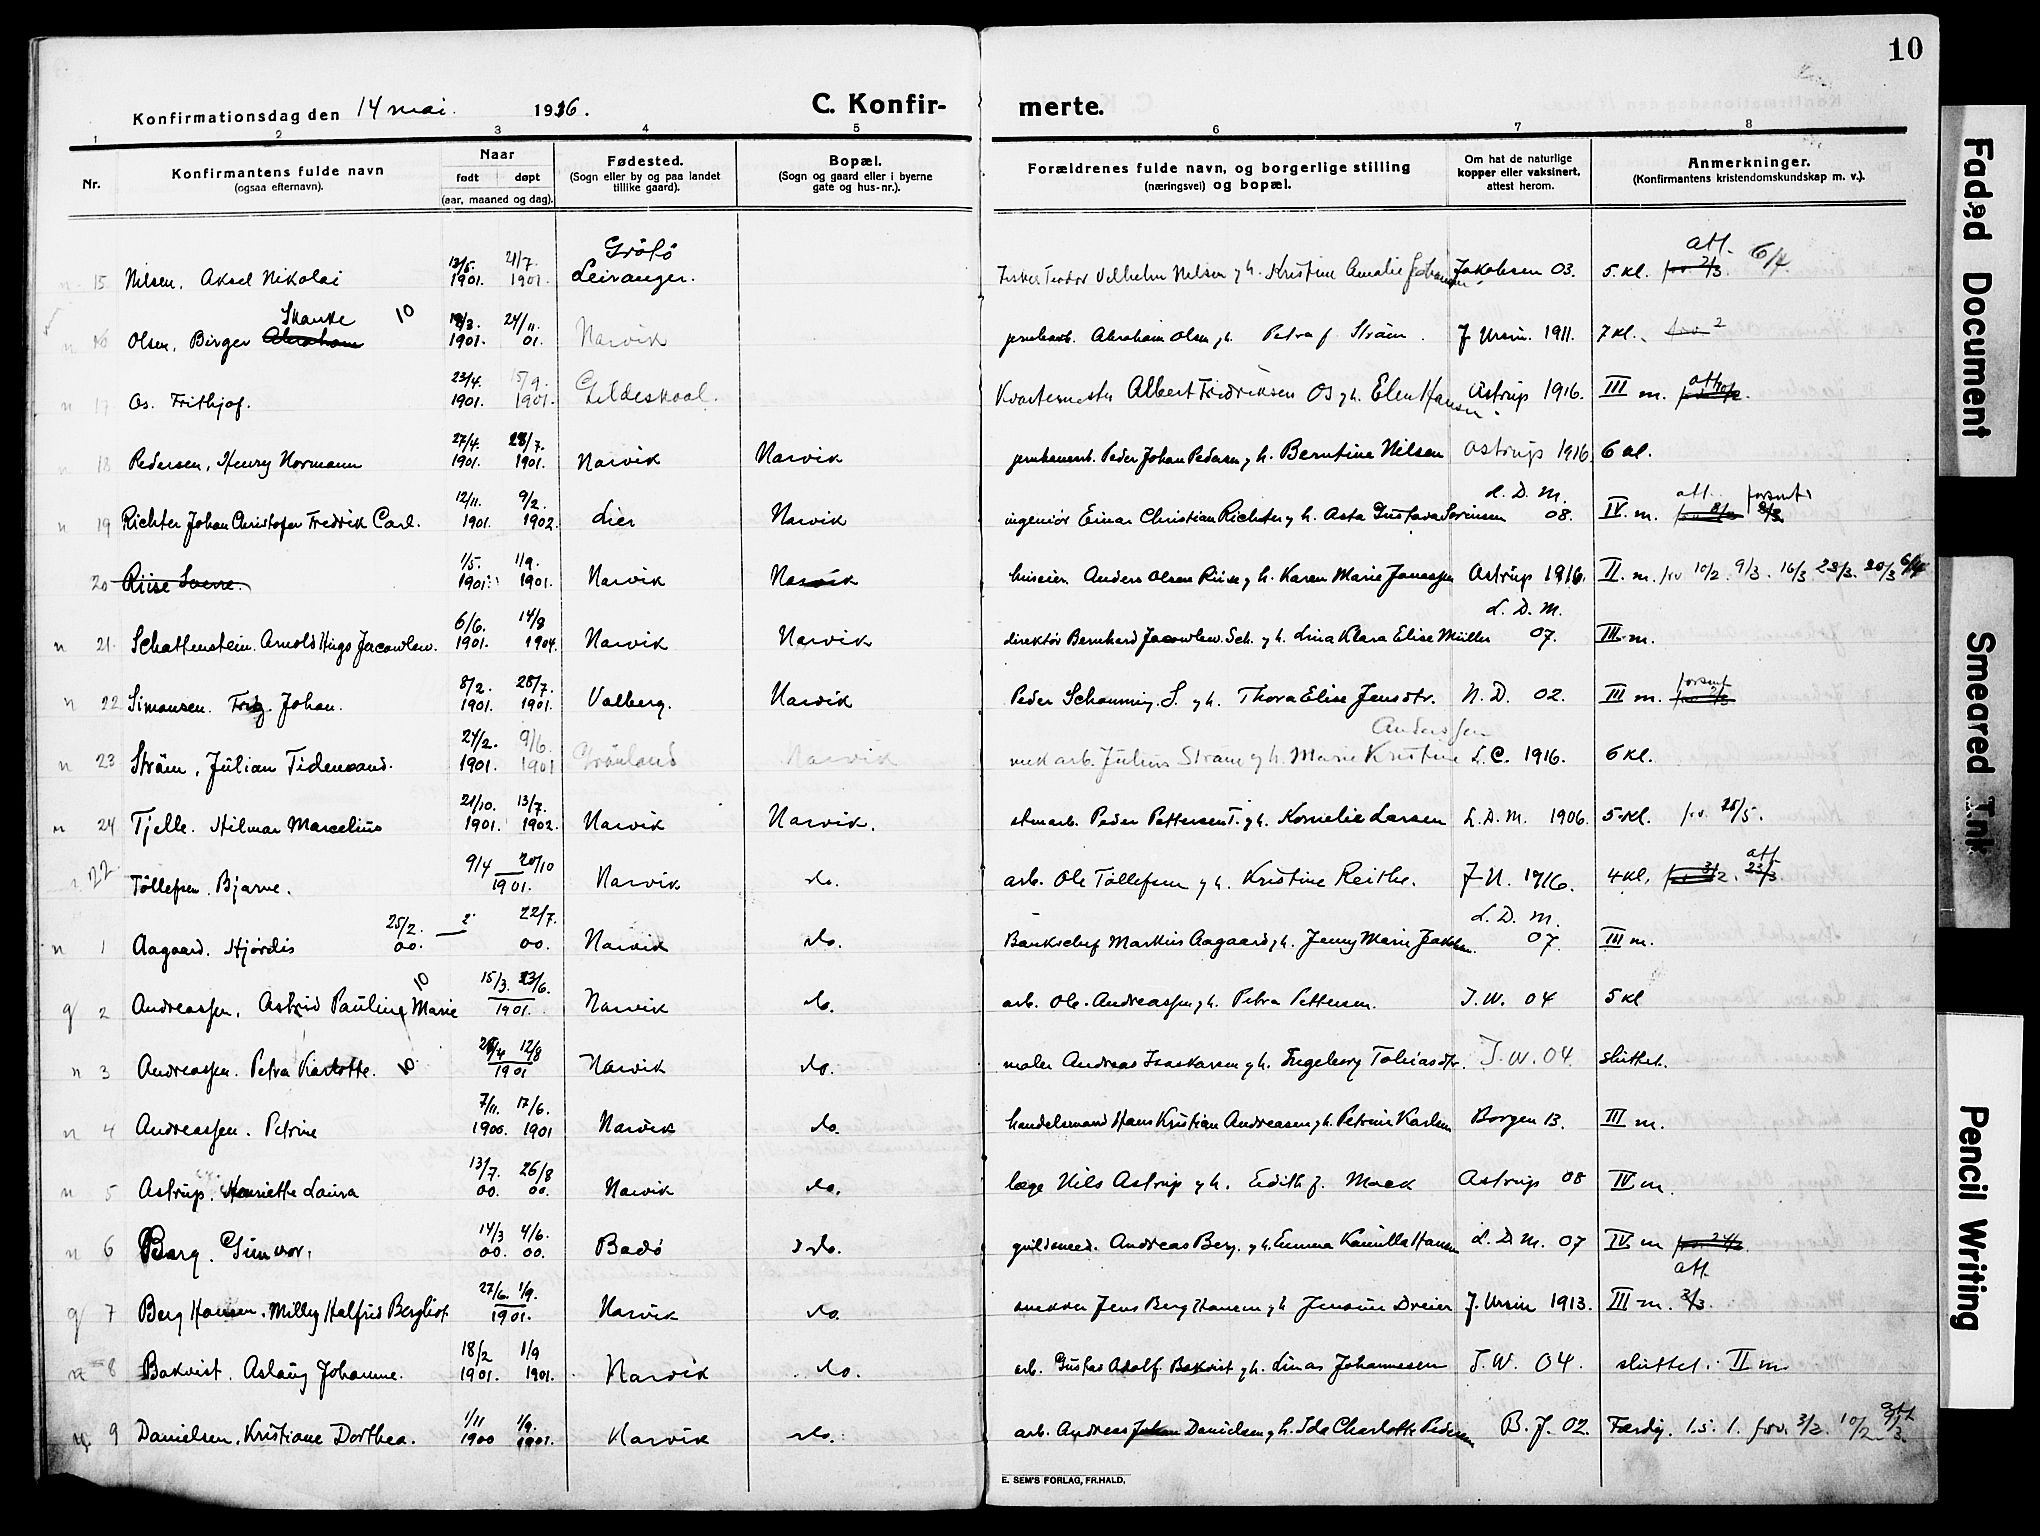 10
Konfirmationsdag den 14 mai. 1916.
C. Konfir- merte.
1 2 3 4 5 6 7 8
Nr.
Konfirmantens fulde navn
(ogsaa efternavn).
Naar
født døpt
(aar, maaned og dag).
Fødested.
(Sogn eller by og paa landet
tillike gaard).
Bopæl.
(Sogn og gaard eller i byerne
gate og hus-nr.).
Forældrenes fulde navn, og borgerlige stilling
(næringsvei) og bopæl.
Om hat de naturlige
kopper eller vaksinert,
attest herom.
Anmerkninger.
(Konfirmantens kristendomskundskap m. v.).
Grötö att. 6/4
13/5. 21/7.
15 Nilsen, Aksel Nikolai 1901. 1901. Leiranger. Fisker Teodor Vilhelm Nilsen g h. Kristine Amalie Jakobsen 03. 5. kl.
Skanke 10
24/11.
16 Olsen, Birger Abraham 1901. 01. Narvik Abraham Olsen g h. Petra f. Ström. J Ursin. 1911. 7 kl.
23/4. 15/9. att
17 Os. Frithjof. 1901. 1901. Gildeskaal. Kvartermester Albert Fredriksen Os g h. Elen Hansen. Astrup 1916. III m.
27/4. 28/7.
n 18 Pedersen, Henry Normann 1901. 1901. Narvik Narvik Peder Johan Pedersen g h. Berntine Nilsen Astrup 1916 6 kl.
12/11. 9/2. L. D. M. att. forsømt
n 19 Richter Johan Christofer Fredrik Carl. 1901. 1902. Lier Narvik ingeniör Einar Christian Richter g h. Asta Gustava Sorensen 08. IV. m.
1/5. 1/9.
20 Riise Sverre. 1901. 1901. Narvik Narvik Anders Olsen Riise g h. Karen Marie Jonassen Astrup 1916. II. m. frv 10/2. 9/3. 16/3 23/3. 6/4
6/6. 14/8 L. D. M.
n 21. Schattenstein. Arnold Hugo Jacowlew. 1901. 1904. Narvik Narvik direktör Bernhard Jacowlew. Sch. g h. Lina Klara Elise Müller 07. III m.
8/2. 28/7. forsømt
n 22 Simonsen. Johan. 1901. 1901. Valberg. Narvik Peder Schanning. S. g h. Thora Elise Jensdtr. N. D. 02. III m.
24/2. 9/6. Anderssen
n 23 Ström, Julian Tidemand. 1901. 1901 Grönland Narvik arb. Julius Ström g h. Marie Kristine L. C. 1916. 6 kl.
21/10. 13/7.
n 24 Tjelle. Hilmar Marcelius 1901. 1902. Narvik Narvik. Peder Pettersen T. g h. Kornelie Larsen L. D. M. 1906. 5 kl. frv. 25/5.
22 9/4 20/10 att
Tollefsen. Bjarne. 1901. Narvik do. arb. Ole Tollefsen g h. Kristine Reithe. J N. 1916. 4 kl. 23/3.
25/2. 22/7. L. D. M.
n 1 Aagaard. Hjördis 00. 00. Narvik do. Bankschef Markus Aagaard g h. Jenny Marie 07. III m.
10 15/3. 23/6.
g 2 Andreassen, Astrid Pauline Marie 1901. Narvik do. arb. Ole Andreassen g h. Petra Pettersen. J. W. 04 5 kl
12/8
n 3 Andreassen. Petra Karlotte. 10 1901 Narvik do. maler Andreas Isaksen g h. Ingeborg Tobiasdtr. J. W. 04. sluttet.
7/11. 17/6.
n 4 Andreassen. Petrine 1900. 1901 Narvik do. handelsmand Hans Kristian Andreasen g h. Petrine Karlsen Borgen 13. III m.
13/7. 26/8
n 5 Astrup. Henriette Laura 00. 00. Narvik do. læge Nils Astrup g h. Edith f. Mack Astrup 08 IV m.
14/3 4/6.
n 6 Berg. Gunvor. 00. 00. Bodö do. guldsmed. Andreas Berg. g h. Emma Kamilla Hansen L. D. M. 07 IV m
27/6. 1/9. att.
g 7 Berg Hansen. Milly Halfrid Bergliot. 1901. Narvik do. snekker Jens Berg Hansen g h Jensine Dreier J. Ursin 1913. III m. 2/3.
18/2 1/9
n 8 Bakvist. Aslaug Johanne. 1901. 1901. Narvik do. arb. Gustav Adolf Bakvist g h. Lina Johannesen J. W. 04. sluttet. II m
1/11 1/9.
n. 9 Danielsen. Kristiane Dorthea. 1900 1901. Narvik do. arb. Andreas Johan Danielsen g h. Ida Charlotte Pedersen B. J. 02. Færdig. 1. 5. 1. frv. 3/2. 10/2. 9/3.
E. SEM'S FORLAG, FR.HALD.
Faded Document
Smeared Ink
Pencil Writing